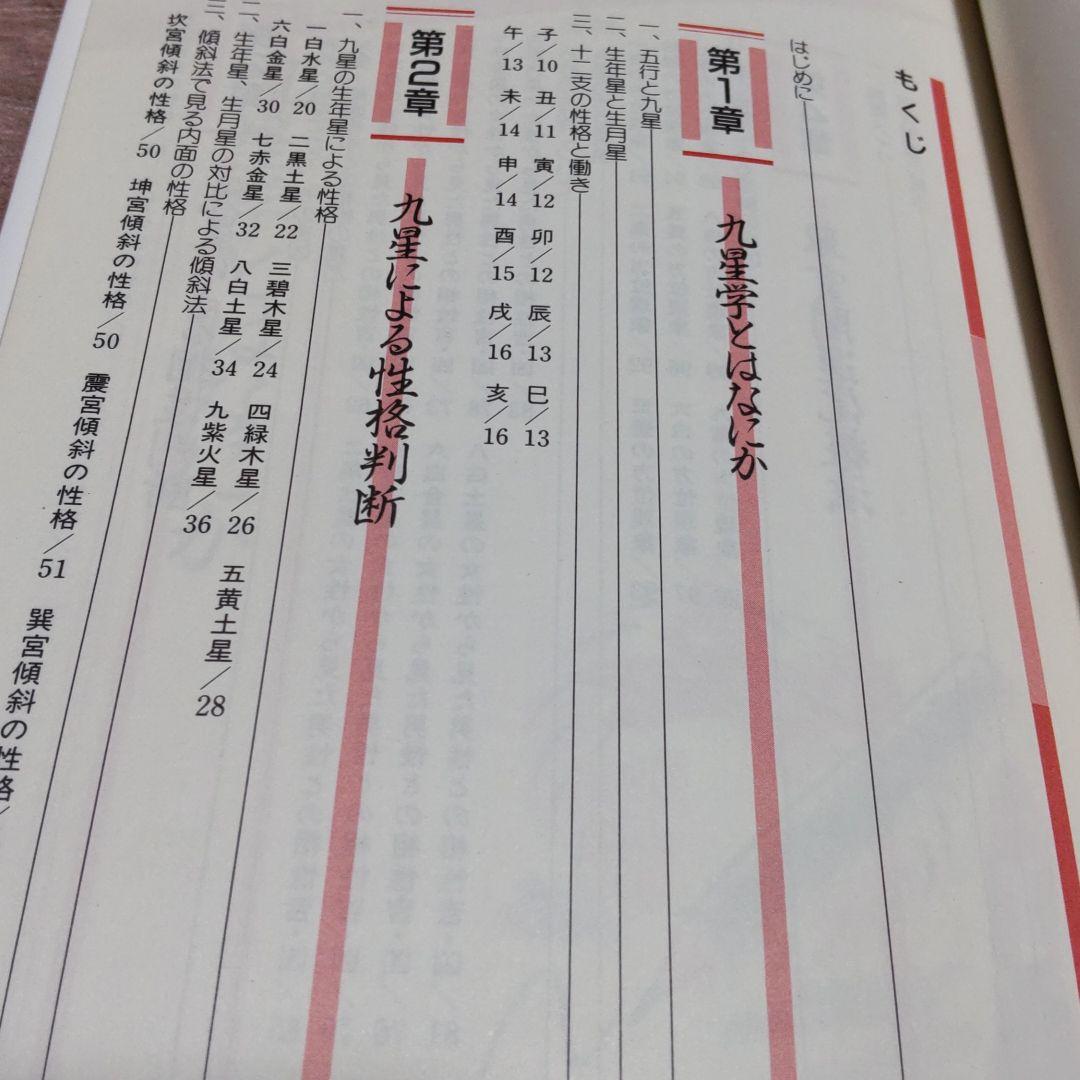 もくじ
はじめに
第1章
九星学とはなにか
一、五行と九星
二、生年星と生月星
三、十二支の性格と働き
子/10 丑/11 寅/12 卯/12 辰/13 巳/13
午/13 未/14 申/14 酉/15 戌/16 亥/16
第2章
九星による性格判断
一、九星の生年星による性格
一白水星/20 二黒土星/22 三碧木星/24 四緑木星/26 五黄土星/28
六白金星/30 七赤金星/32 八白土星/34 九紫火星/36
二、生年星、生月星の対比による傾斜法
三、傾斜法で見る内面の性格
坎宮傾斜の性格/50 坤宮傾斜の性格/50 震宮傾斜の性格/51 巽宮傾斜の性格/